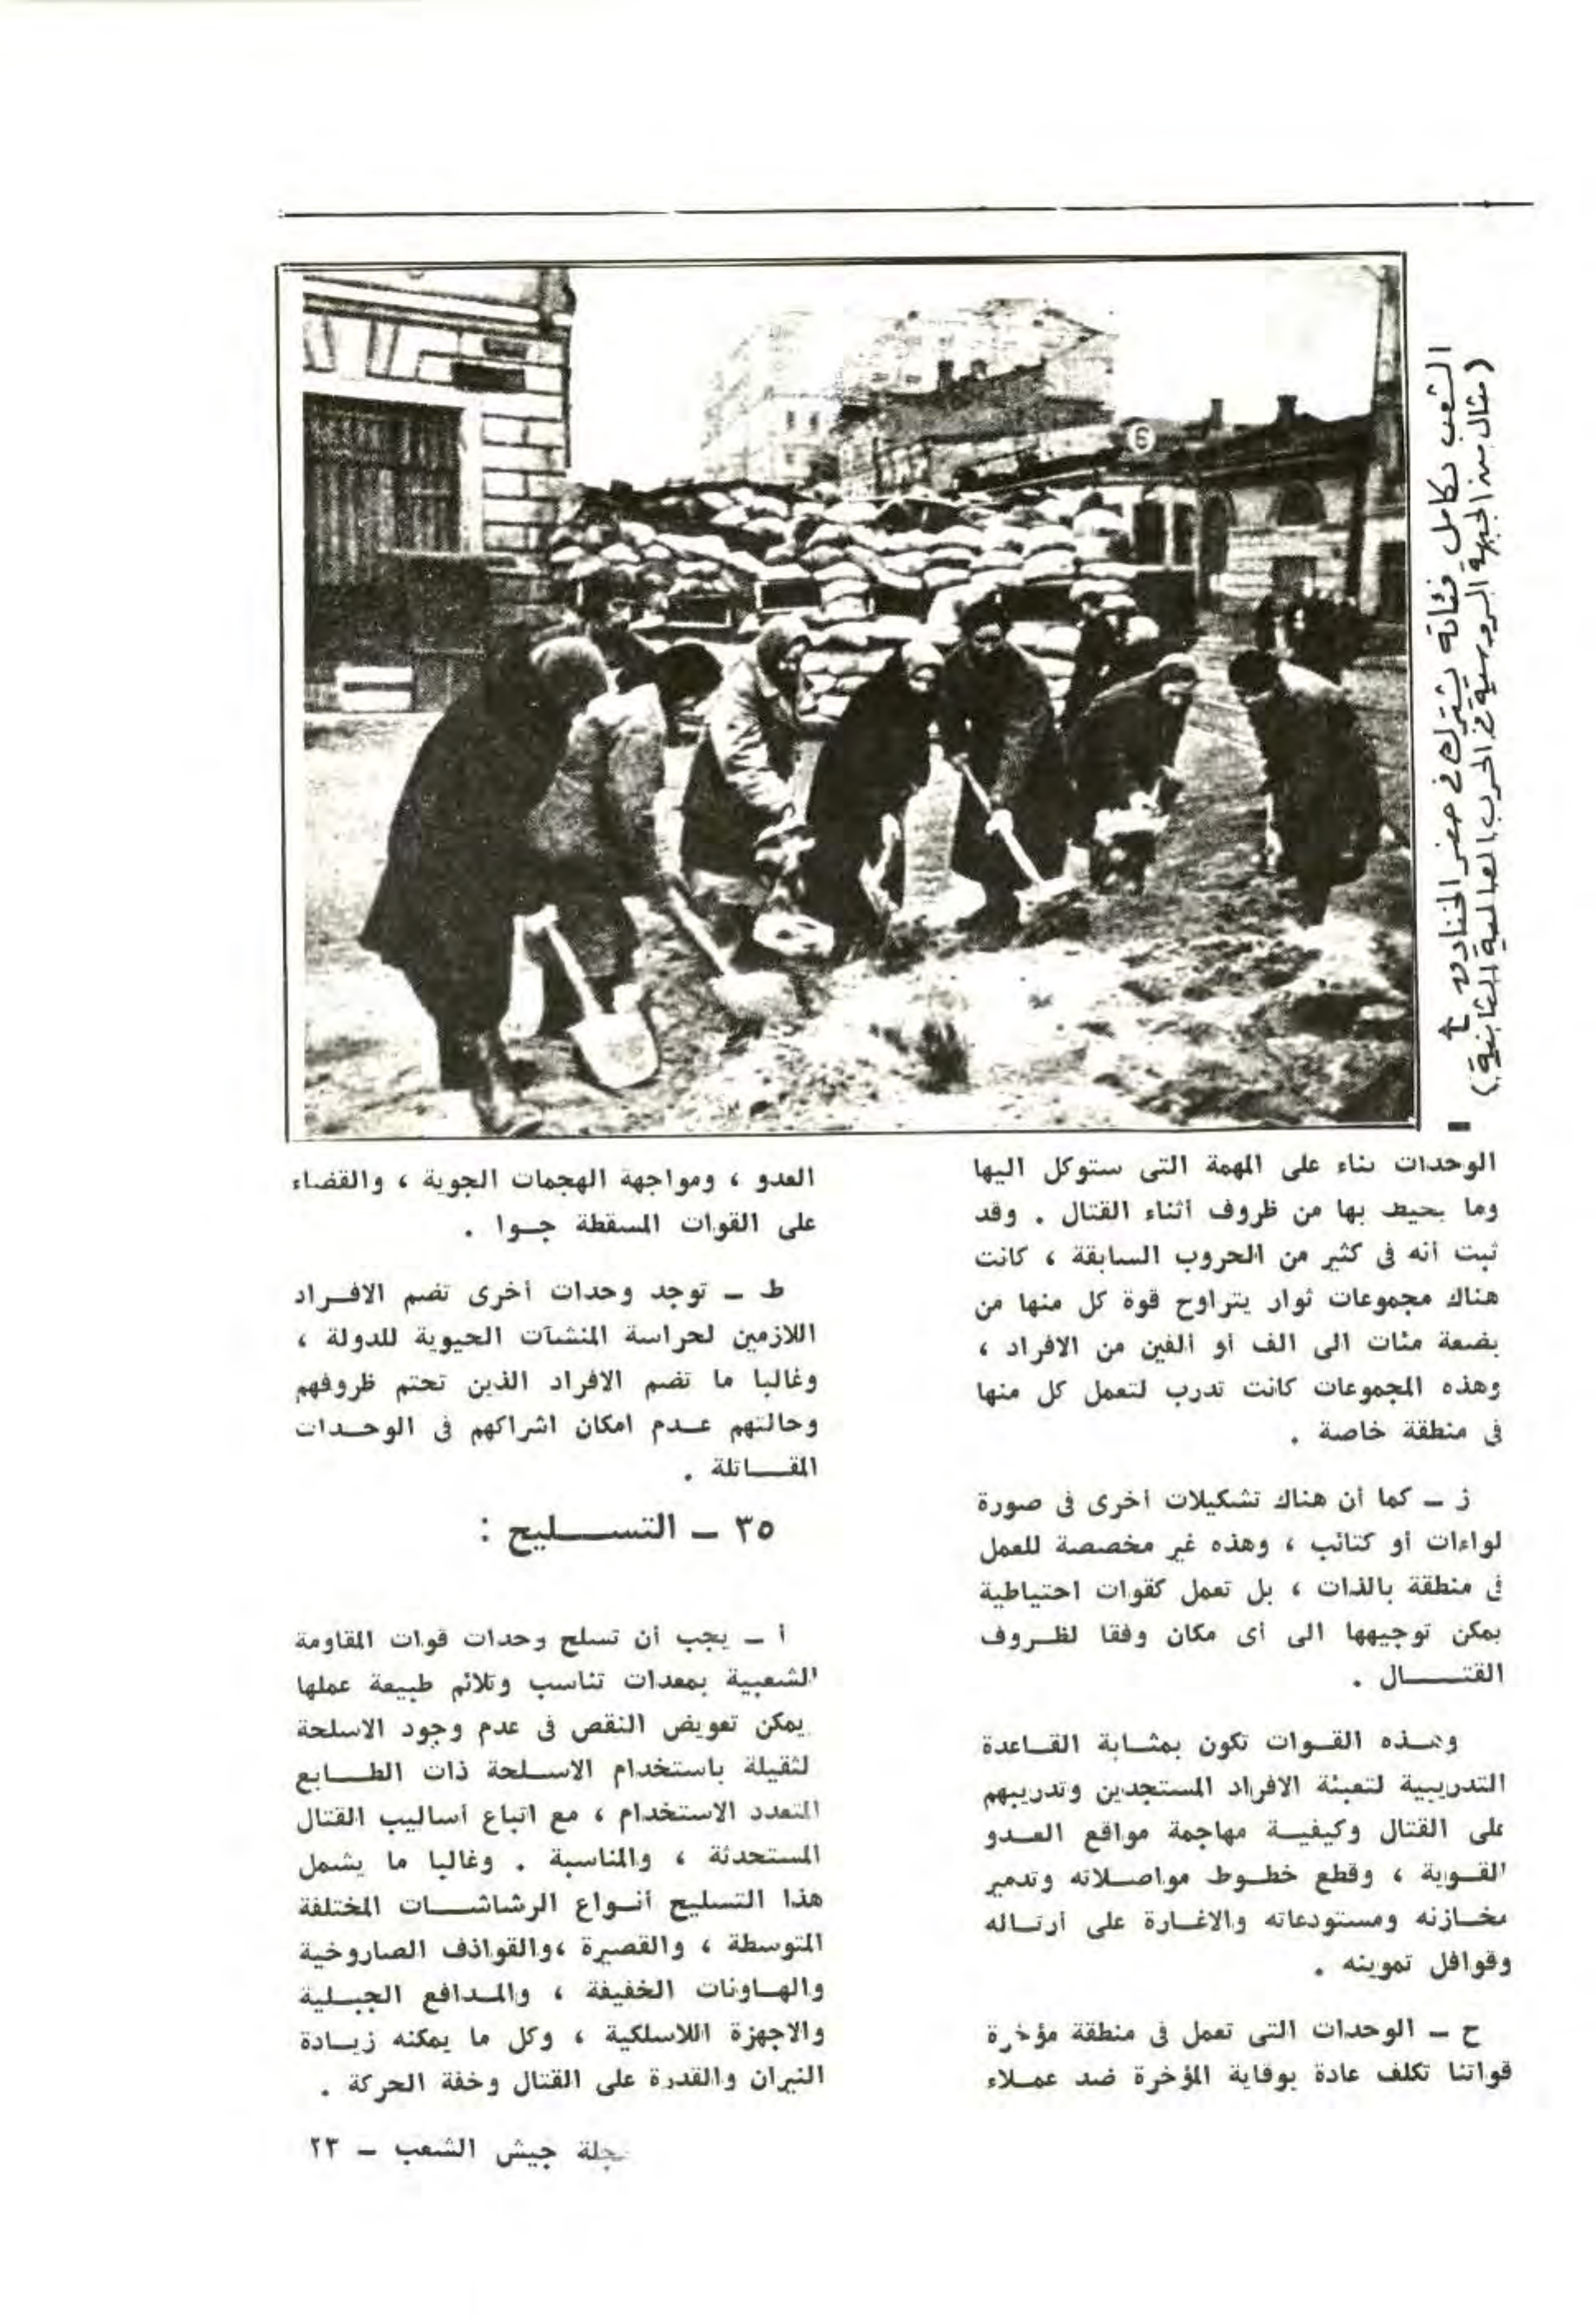 الشعب بكامل فئاته يشترك في حفر الخنادق
(مثال من الجبهة الروسية في الحرب العالمية الثانية)
6
الوحدات بناء على المهمة التى ستوكل اليها
وما يحيط بها من ظروف أثناء القتال . وقد
ثبت أنه فى كثير من الحروب السابقة ، كانت
هناك مجموعات ثوار يتراوح قوة كل منها من
بضعة مئات الى الف أو ألفين من الافراد ،
وهذه المجموعات كانت تدرب لتعمل كل منها
فى منطقة خاصة .
ز ـ كما أن هناك تشكيلات أخرى فى صورة
لواءات أو كتائب ، وهذه غير مخصصة للعمل
فى منطقة بالذات ، بل تعمل كقوات احتياطية
يمكن توجيهها الى أى مكان وفقا لظــروف
القتـــــال .
وهــذه القــوات تكون بمثــابة القــاعدة
التدريبية لتعبئة الافراد المستجدين وتدريبهم
على القتال وكيفيــة مهاجمة مواقع العــدو
القــوية ، وقطع خطــوط مواصــلاته وتدمير
مخــازنه ومستودعاته والاغــارة على أرتــاله
وقوافل تموينه .
ح ـ الوحدات التى تعمل فى منطقة مؤخرة
قواتنا تكلف عادة بوقاية المؤخرة ضد عمــلاء
العدو ، ومواجهة الهجمات الجوية ، والقضاء
على القوات المسقطة جــوا .
ط ـ توجد وحدات أخرى تضم الافــراد
اللازمين لحراسة المنشآت الحيوية للدولة ،
وغالبا ما تضم الافراد الذين تحتم ظروفهم
وحالتهم عــدم امكان اشراكهم فى الوحــدات
المقــــاتلة .
٣٥ ـ التســــليح :
أ ـ يجب أن تسلح وحدات قوات المقاومة
الشعبية بمعدات تناسب وتلائم طبيعة عملها
يمكن تعويض النقص فى عدم وجود الاسلحة
لثقيلة باستخدام الاســلحة ذات الطــــابع
المتعدد الاستخدام ، مع اتباع أساليب القتال
المستحدثة ، والمناسبة . وغالبا ما يشمل
هذا التسليح أنــواع الرشاشــــات المختلفة
المتوسطة ، والقصيرة ،والقواذف الصاروخية
والهــاونات الخفيفة ، والمــدافع الجبــلية
والاجهزة اللاسلكية ، وكل ما يمكنه زيــادة
النيران والقدرة على القتال وخفة الحركة .
مجلة جيش الشعب ـ ٢٣